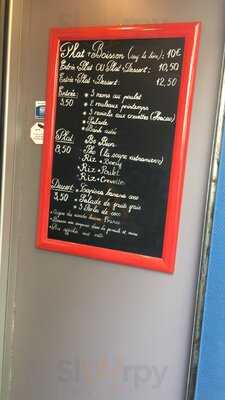 Plat + Boisson (soup la bière): 10€
Entrée + Plat OU Plat + Dessert: 10,50
Entrée + Plat + Dessert: 12,50
Entrée: * 3 nems au poulet
5,50 * 2 rouleaux printemps
* 3 raviolis aux crevettes (Hacao)
* Salade
* Banh cuon
Plat * Bo Bun
8,50 - Pho (la soupe vietnamienne)
- Riz + Boeuf
- Riz + Poulet
- Riz + Crevette
Dessert * Tapioca banane coco
3,50 * Salade de fruits frais
* 3 Perles de coco
* Origine des viandes: France